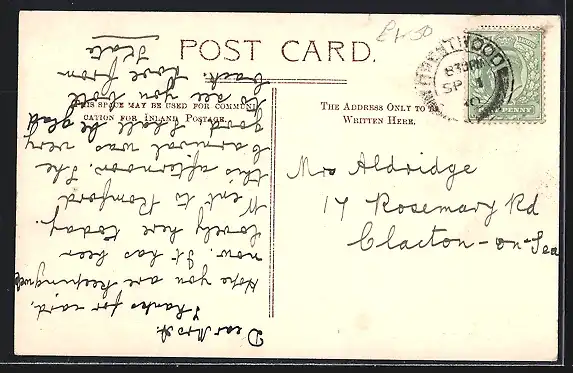 £1-50
POST CARD.
THIS SPACE MAY BE USED FOR COMMUNI-
CATION FOR INLAND POSTAGE.
THE ADDRESS ONLY TO BE
WRITTEN HERE.
BRENTWOOD
8.30PM
SP
PENNY
Mrs Aldridge
17 Rosemary Rd
Clacton-on-Sea
Dear Mrs A.
Thanks for card,
Hope you are keeping well
now. It has been
lovely here today.
Went to Romford
this afternoon. The
Carnival was very
good. Shall be glad
to see you both
back. Love from
Kate